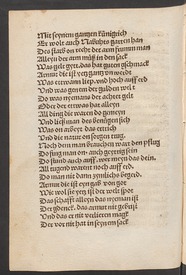 Mit seynem gantzen künigrich
Er wolt auch Nabuches garten han
Des starb on weder der arm frumm man
Alleyn der arm müß in den sack
Was gelt gyt, das hat güten gschmack
Armüt die ist yetz gantz vnwerdt
Was ettwann liep, vnd hoch vff erd
Vnd was genem der gulden welt
Do was nyemans der achtet gelt
Oder der ettwas hat alleyn
All ding die waren do gemeyn
Vnd ließ man des benügen sich
Was on arbeyt das ertrich
Vnd die natur on sorgen trüg
Noch dem man bruchen wart den pflug
Do fing man an, auch gyttig sin
Do stund auch vff, wer myn das din
All tugend warent noch vff erd
Do man nüt dann zymlichs begerd
Armüt die ist eyn gab von got
Wie wol sie yetz ist der welt spot
Das schafft alleyn das nyeman ist
Der gdenck, das armüt nüt gebrist
Vnd das er nüt verlieren mag
Der vor nit hat in synem sack